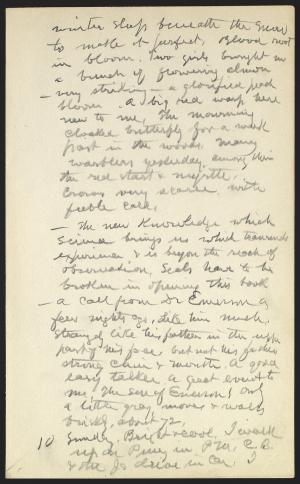 winter sleep beneath the snow
to make it perfect. Blood root
in bloom. Two girls brought in
a bunch of flowering almond
— very striking — a glorified peach
bloom. A big red wasp here
new to me, The mourning
cloaked butterfly for a week
past in the woods. Many
warblers yesterday, among them
the red start &
Crows very scarce with
feeble calls.
— The new Knowledge which
Science brings us which transcends
experience & is beyon the reach of
observation, Seals have to be
broken in opening this book
— a call from Dr Emerson a
few nights ago, like him much.
Strangely like his father in the upper
part of his face but not his father's
strong chin & mouth. A good
easy talker. A great event to
me, The son of Emerson! only
a little gray, moves & walks
briskly, about 72.
10 Sunday, Bright & cool, I walk
up the in P.M., C.B.
& the Js drive in Car. I